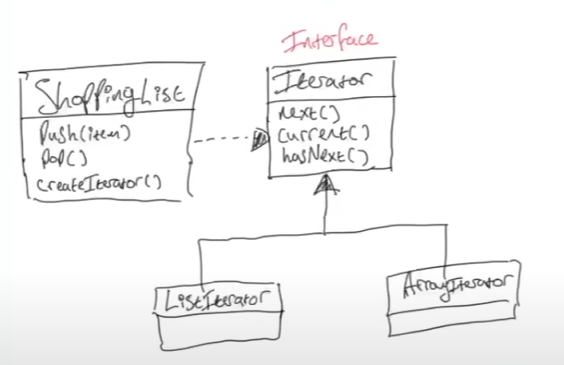 Interface
ShoppingList
Push(item)
Pop()
createIterator()
Iterator
next()
current()
hasNext()
ListIterator
ArrayIterator